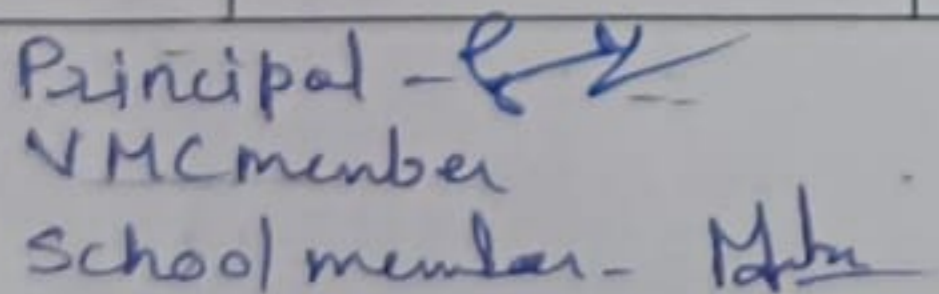 Principal -
VMC member
School member -